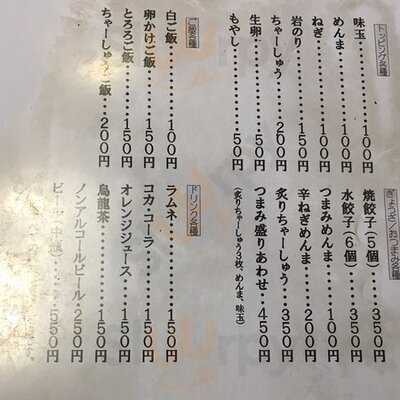 トッピング各種
味玉・・・・・・・１００円
めんま・・・・・・１００円
ねぎ・・・・・・・１００円
岩のり・・・・・・１５０円
ちゃーしゅう・・・２００円
生卵・・・・・・・５０円
もやし・・・・・・５０円
ご飯各種
白ご飯・・・・・・１００円
卵かけご飯・・・・１５０円
とろろご飯・・・・１５０円
ちゃーしゅうご飯・２００円
ぎょうざ／おつまみ各種
焼餃子（５個）・・３５０円
水餃子（６個）・・３５０円
つまみめんま・・・１００円
辛ねぎめんま・・・２００円
炙りちゃーしゅう・・３５０円
つまみ盛りあわせ・・４５０円
（炙りちゃーしゅう３枚、めんま、味玉）
ドリンク各種
ラムネ・・・・・・１５０円
コカ・コーラ・・・１５０円
オレンジジュース・・１５０円
烏龍茶・・・・・・１５０円
ノンアルコールビール・２５０円
ビール（中瓶）・・５５０円